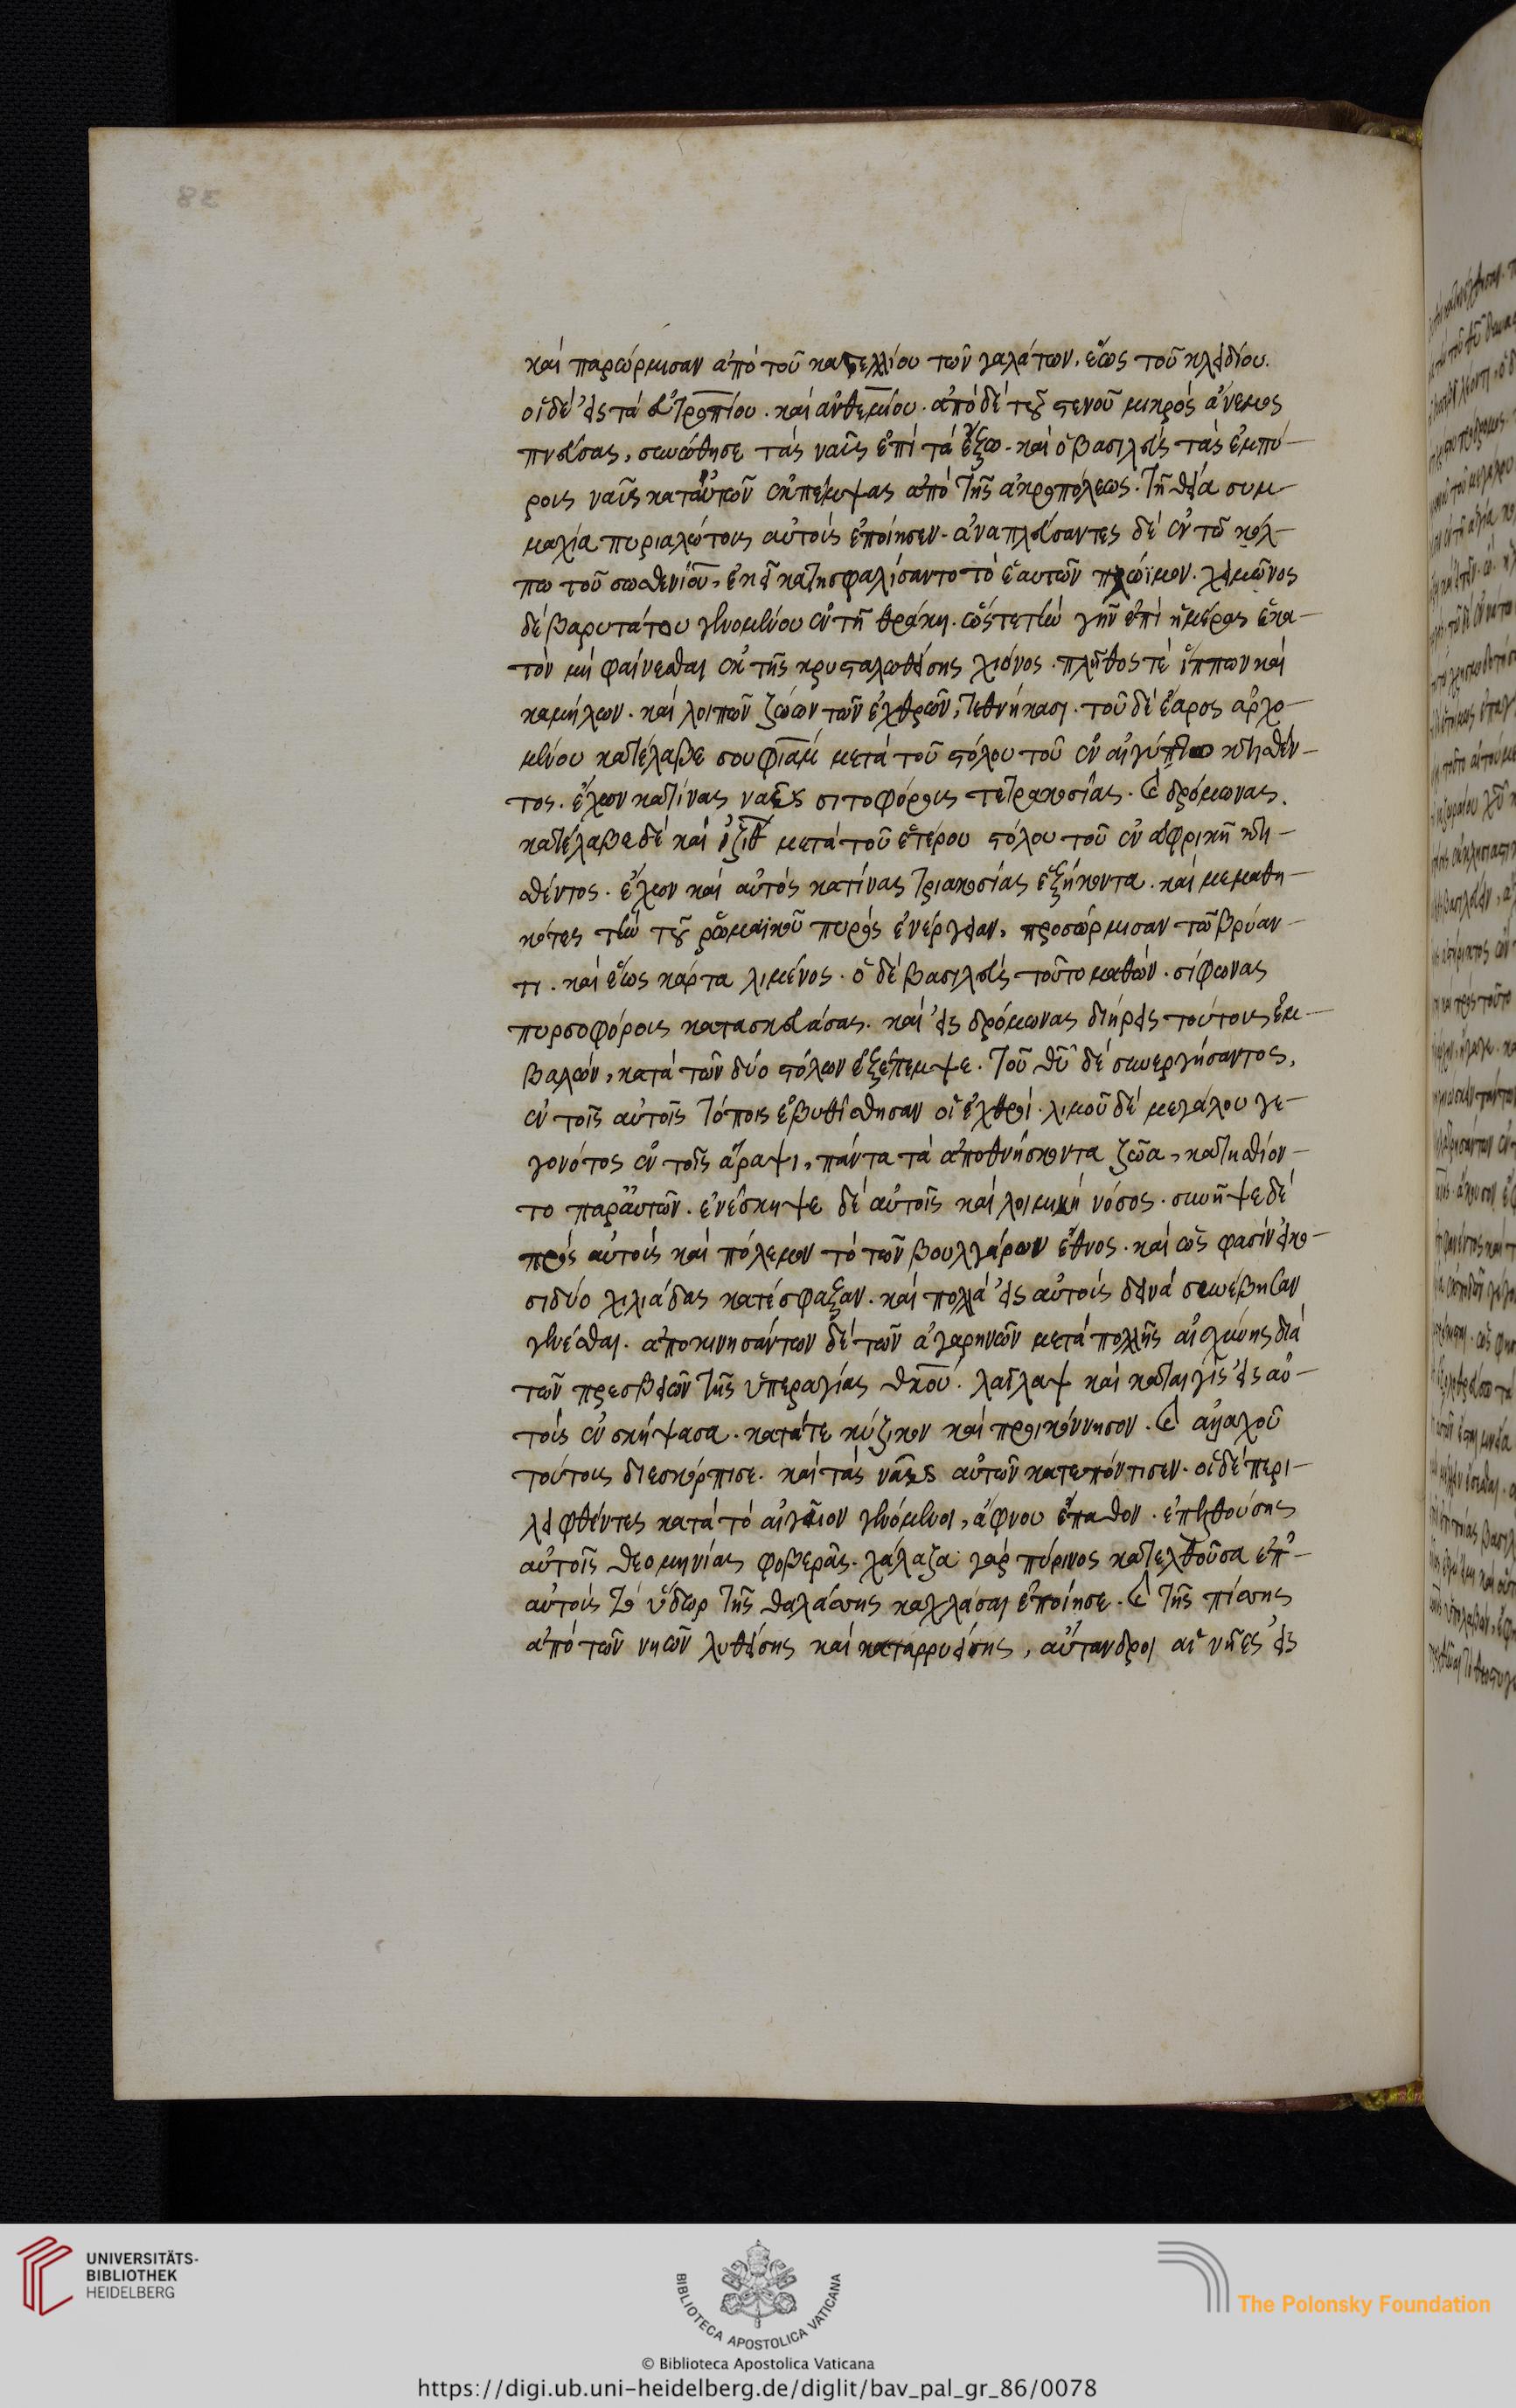 καὶ παρώρμισαν ἀπὸ τοῦ καστελλίου τῶν γαλάτων, ἕως τοῦ κλειδίου.
οἱ δὲ εἰς τὰ εὐτροπίου. καὶ ἀνθεμίου. ἀπὸ δὲ τοῦ στενοῦ μικρὸς ἄνεμος
πνεύσας, συνώθησε τὰς ναῦς ἐπὶ τὰ ἔξω. καὶ ὁ βασιλεὺς τὰς ἐμπύ-
ρους ναῦς κατ' αὐτῶν ἐκπέμψας ἀπὸ τῆς ἀκροπόλεως. τῆ θεία συμ-
μαχία πυριαλώτους αὐτοὺς ἐποίησεν. ἀναπλεύσαντες δὲ ἐν τῶ κόλ-
πω τοῦ σωσθενίου, ἐκεῖ κατησφαλίσαντο τὸ ἑαυτῶν πλώϊμον. χειμῶνος
δὲ βαρυτάτου γενομένου ἐν τῆ θράκη. ὥστε τὴν γῆν ἐπὶ ἡμέρας ἑκα-
τὸν μὴ φαίνεσθαι ἐκ τῆς κρυσταλωθείσης χιόνος. πλῆθος τὲ ἵππων καὶ
καμήλων. καὶ λοιπῶν ζώων τῶν ἐχθρῶν, τεθνήκασι. τοῦ δὲ ἔαρος ἀρχο-
μένου κατέλαβε σουφιὰμ μετὰ τοῦ στόλου τοῦ ἐν αἰγύπτω κτισθέν-
τος. ἔχων κατίνας ναῦς σιτοφόρους τετρακοσίας. καὶ δρόμωνας.
κατέλαβε δὲ καὶ ἰζὶθ μετὰ τοῦ ἑτέρου στόλου τοῦ ἐν ἀφρικῆ κτι-
σθέντος. ἔχων καὶ αὐτὸς κατίνας τριακοσίας ἑξήκοντα. καὶ μεμαθη-
κότες τὴν τοῦ ῥωμαϊκοῦ πυρὸς ἐνέργειαν, προσώρμισαν τῶ βρύαν-
τι. καὶ ἕως κάρτα λιμένος. ὁ δὲ βασιλεὺς τοῦτο μαθών. σίφωνας
πυρσοφόρους κατασκευάσας. καὶ εἰς δρόμωνας διήρεις τούτους ἐμ-
βαλών, κατὰ τῶν δύο στόλων ἐξέπεμψε. τοῦ θῦ δὲ συνεργήσαντος,
ἐν τοῖς αὐτοῖς τόποις ἐβυθίσθησαν οἱ ἐχθροί. λιμοῦ δὲ μεγάλου γε-
γονότος ἐν τοῖς ἄραψι, πάντα τὰ ἀποθνήσκοντα ζῶα, κατησθίον-
το παρ' αὐτῶν. ἐνέσκηψε δὲ αὐτοῖς καὶ λοιμικὴ νόσος. συνῆψε δὲ
πρὸς αὐτοὺς καὶ πόλεμον τὸ τῶν βουλγάρων ἔθνος. καὶ ὥς φασιν εἰκο-
σιδύο χιλιάδας κατέσφαξαν. καὶ πολλὰ εἰς αὐτοὺς δεινὰ συνέβησαν
γενέσθαι. ἀποκινησάντων δὲ τῶν ἀγαρηνῶν μετὰ πολλῆς αἰσχύνης διὰ
τῶν πρεσβειῶν τῆς ὑπεραγίας θκου. λαῖλαψ καὶ καταιγὶς εἰς αὐ-
τοὺς ἐνσκήψασα. κατά τε κύζικον καὶ προικόννησον. καὶ αἰγιαλοῦ
τούτους διεσκόρπισε. καὶ τὰς ναῦς αὐτῶν κατεπόντισεν. οἱ δὲ περι-
λειφθέντες κατὰ τὸ αἰγαῖον γενόμενοι, ἄφνου ἔπαθον. ἐπελθούσης
αὐτοῖς θεομηνίας φοβερᾶς. χάλαζα γὰρ πύρινος κατελθοῦσα ἐπ'
αὐτοὺς τὸ ὕδωρ τῆς θαλάσσης καχλάσαι ἐποίησε. καὶ τῆς πίσσης
ἀπὸ τῶν νηῶν λυθείσης καὶ καταρρυείσης, αὔτανδροι αἱ νῆες εἰς
38
UNIVERSITÄTS-
BIBLIOTHEK
HEIDELBERG
BIBLIOTECA APOSTOLICA VATICANA
The Polonsky Foundation
© Biblioteca Apostolica Vaticana
https://digi.ub.uni-heidelberg.de/diglit/bav_pal_gr_86/0078